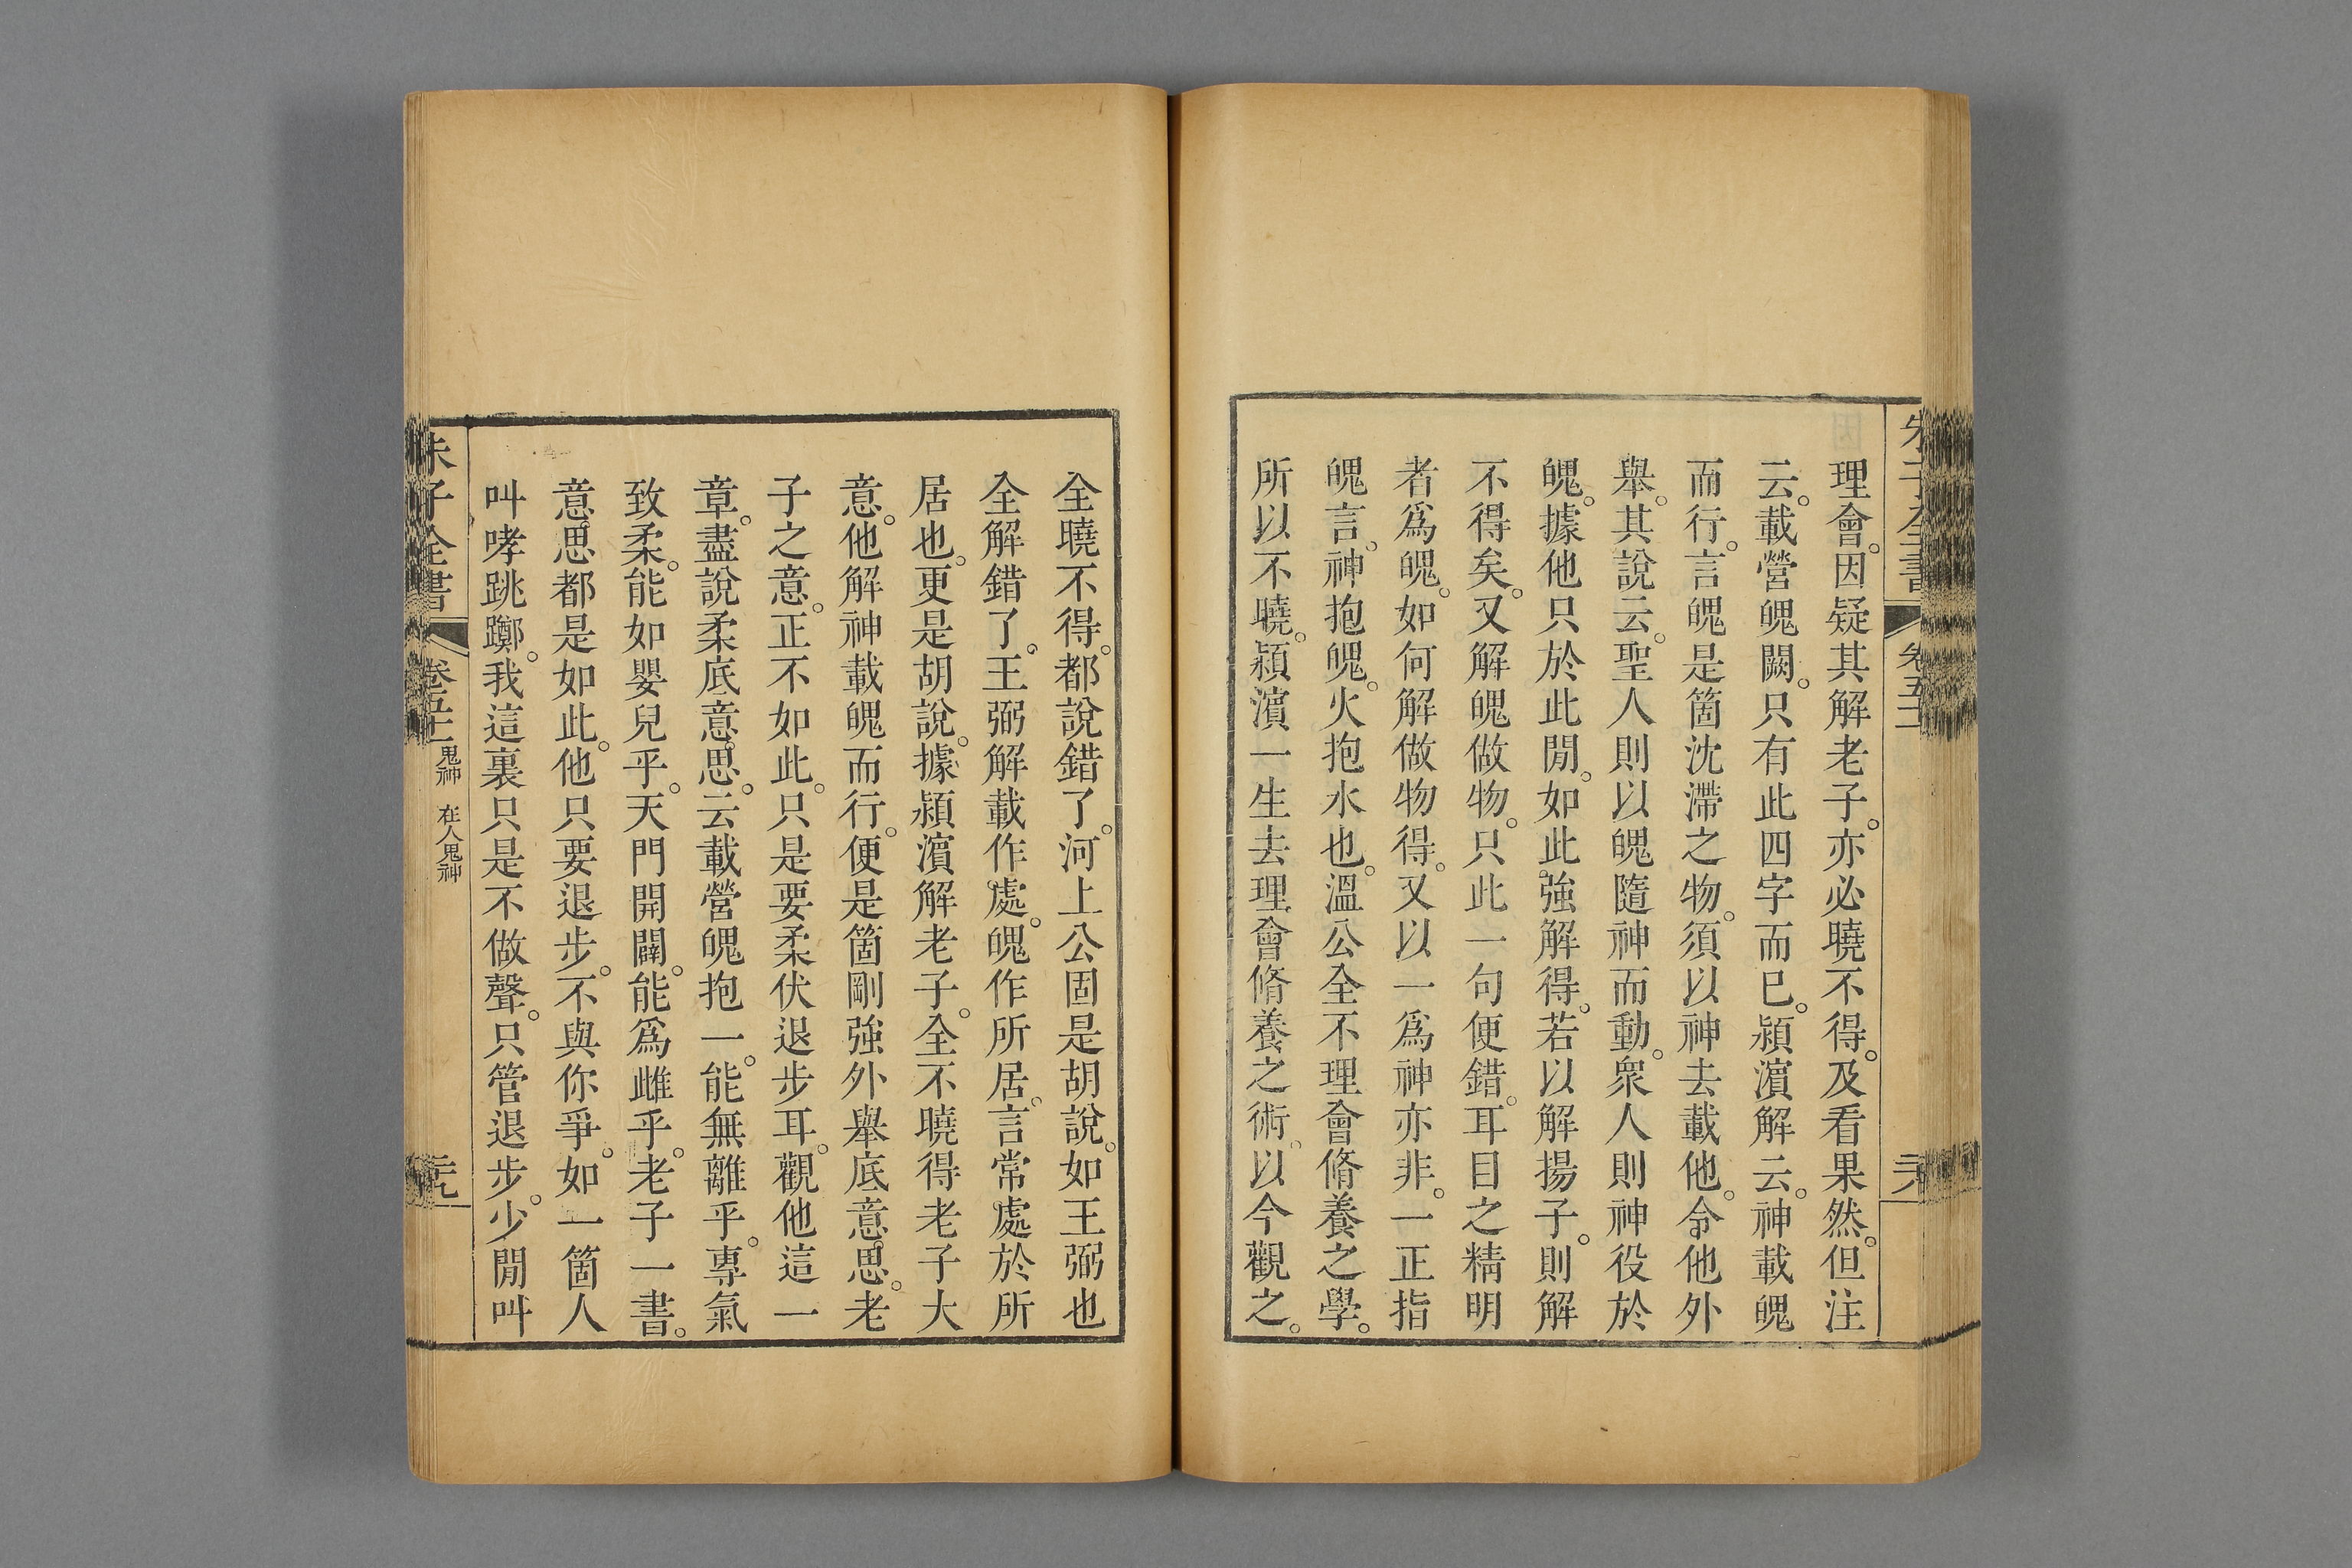 理會。因疑其解老子。亦必曉不得。及看果然。但注
云。載營魄闕。只有此四字而已。潁濱解云。神載魄
而行。言魄是箇沈滯之物。須以神去載他。令他外
舉。其說云。聖人則以魄隨神而動。衆人則神役於
魄。據他只於此閒。如此強解得。若以解揚子。則解
不得矣。又解魄做物。只此一句便錯。耳目之精明
者爲魄。如何解做物得。又以一爲神亦非。一正指
魄言。神抱魄。火抱水也。溫公全不理會脩養之學。
所以不曉。潁濱一生去理會脩養之術。以今觀之。
全曉不得。都說錯了。河上公固是胡說。如王弼也
全解錯了。王弼解載作處。魄作所居。言常處於所
居也。更是胡說。據潁濱解老子。全不曉得老子大
意。他解神載魄而行。便是箇剛強外舉底意思。老
子之意。正不如此。只是要柔伏退步耳。觀他這一
章。盡說柔底意思。云載營魄抱一。能無離乎。專氣
致柔。能如嬰兒乎。天門開闔。能爲雌乎。老子一書。
意思都是如此。他只要退步。不與你爭。如一箇人
叫哮跳躑。我這裏只是不做聲。只管退步。少閒叫
朱子全書 卷五十一 鬼神 在人鬼神